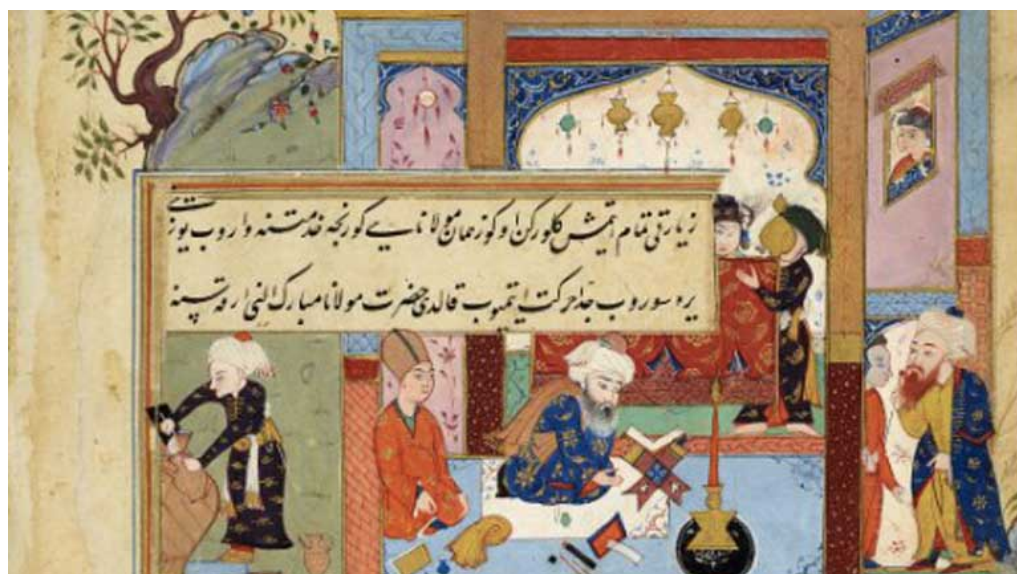 زیارتی تمام اتمش کلورکن اوکوز همان مولانایی کورنجه خدمتنه واروب یوزنی
یره سوروب جدا حرکت ایتمیوب قالدی حضرت مولانا مبارک النی ارقه سنه